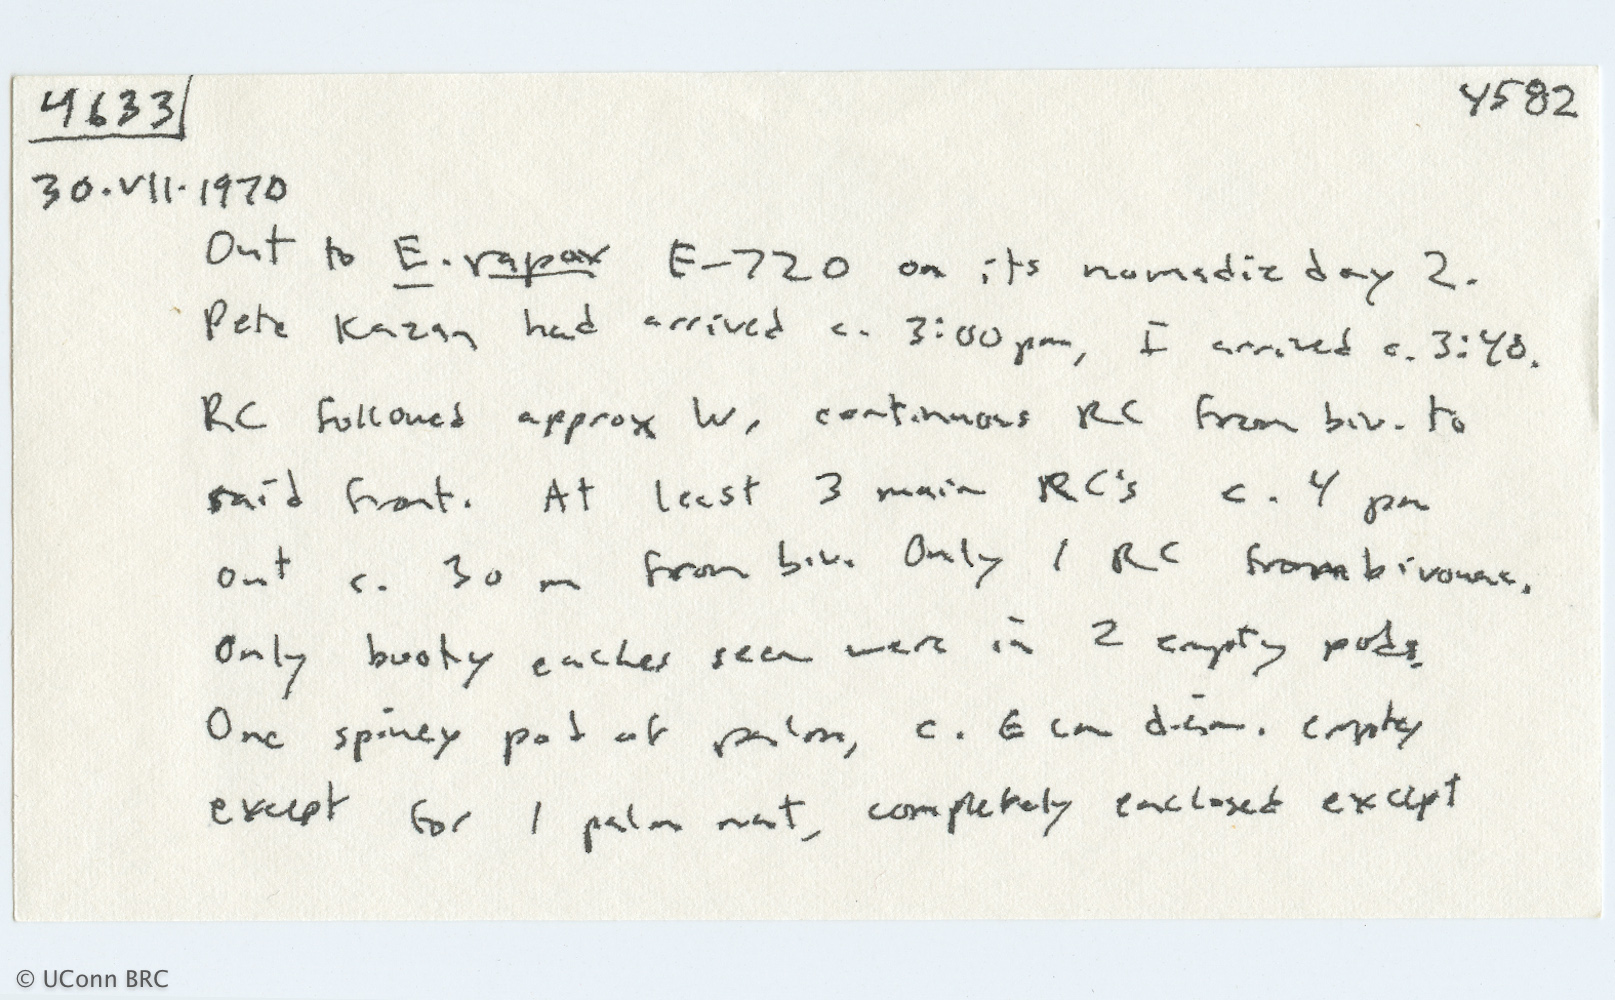 4633
4582
30.VII.1970
Out to E. rapax E-720 on its nomadic day 2.
Pete Kazan had arrived c. 3:00 pm, I arrived c. 3:40.
RC followed approx W, continuous RC from biv. to
raid front. At least 3 main RC's c. 4 pm
out c. 30 m from biv. Only 1 RC from bivouac.
Only booty caches seen were in 2 empty pods.
One spiney pod of palm, c. 6 cm diam. empty
except for 1 palm nut, completely enclosed except
© UConn BRC